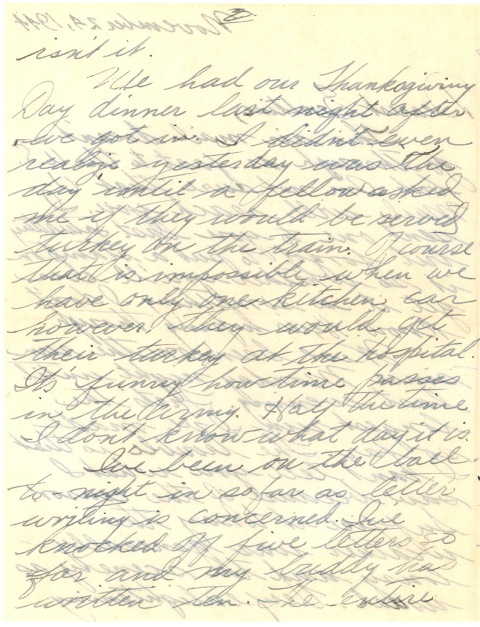 2
isn't it.
We had our Thanksgiving
Day dinner last night after
we got in. I didn't even
realize yesterday was the
day until a fellow asked
me if they would be served
turkey on the train. Of course
that is impossible when we
have only one kitchen car
however they would get
their turkey at the hospital
It's funny how time passes
in the Army. Half the time
I don't know what day it is.
I've been on the ball
to-night in so far as letter
writing is concerned. I've
knocked off five letters so
far and my buddy has
written ten. The entire